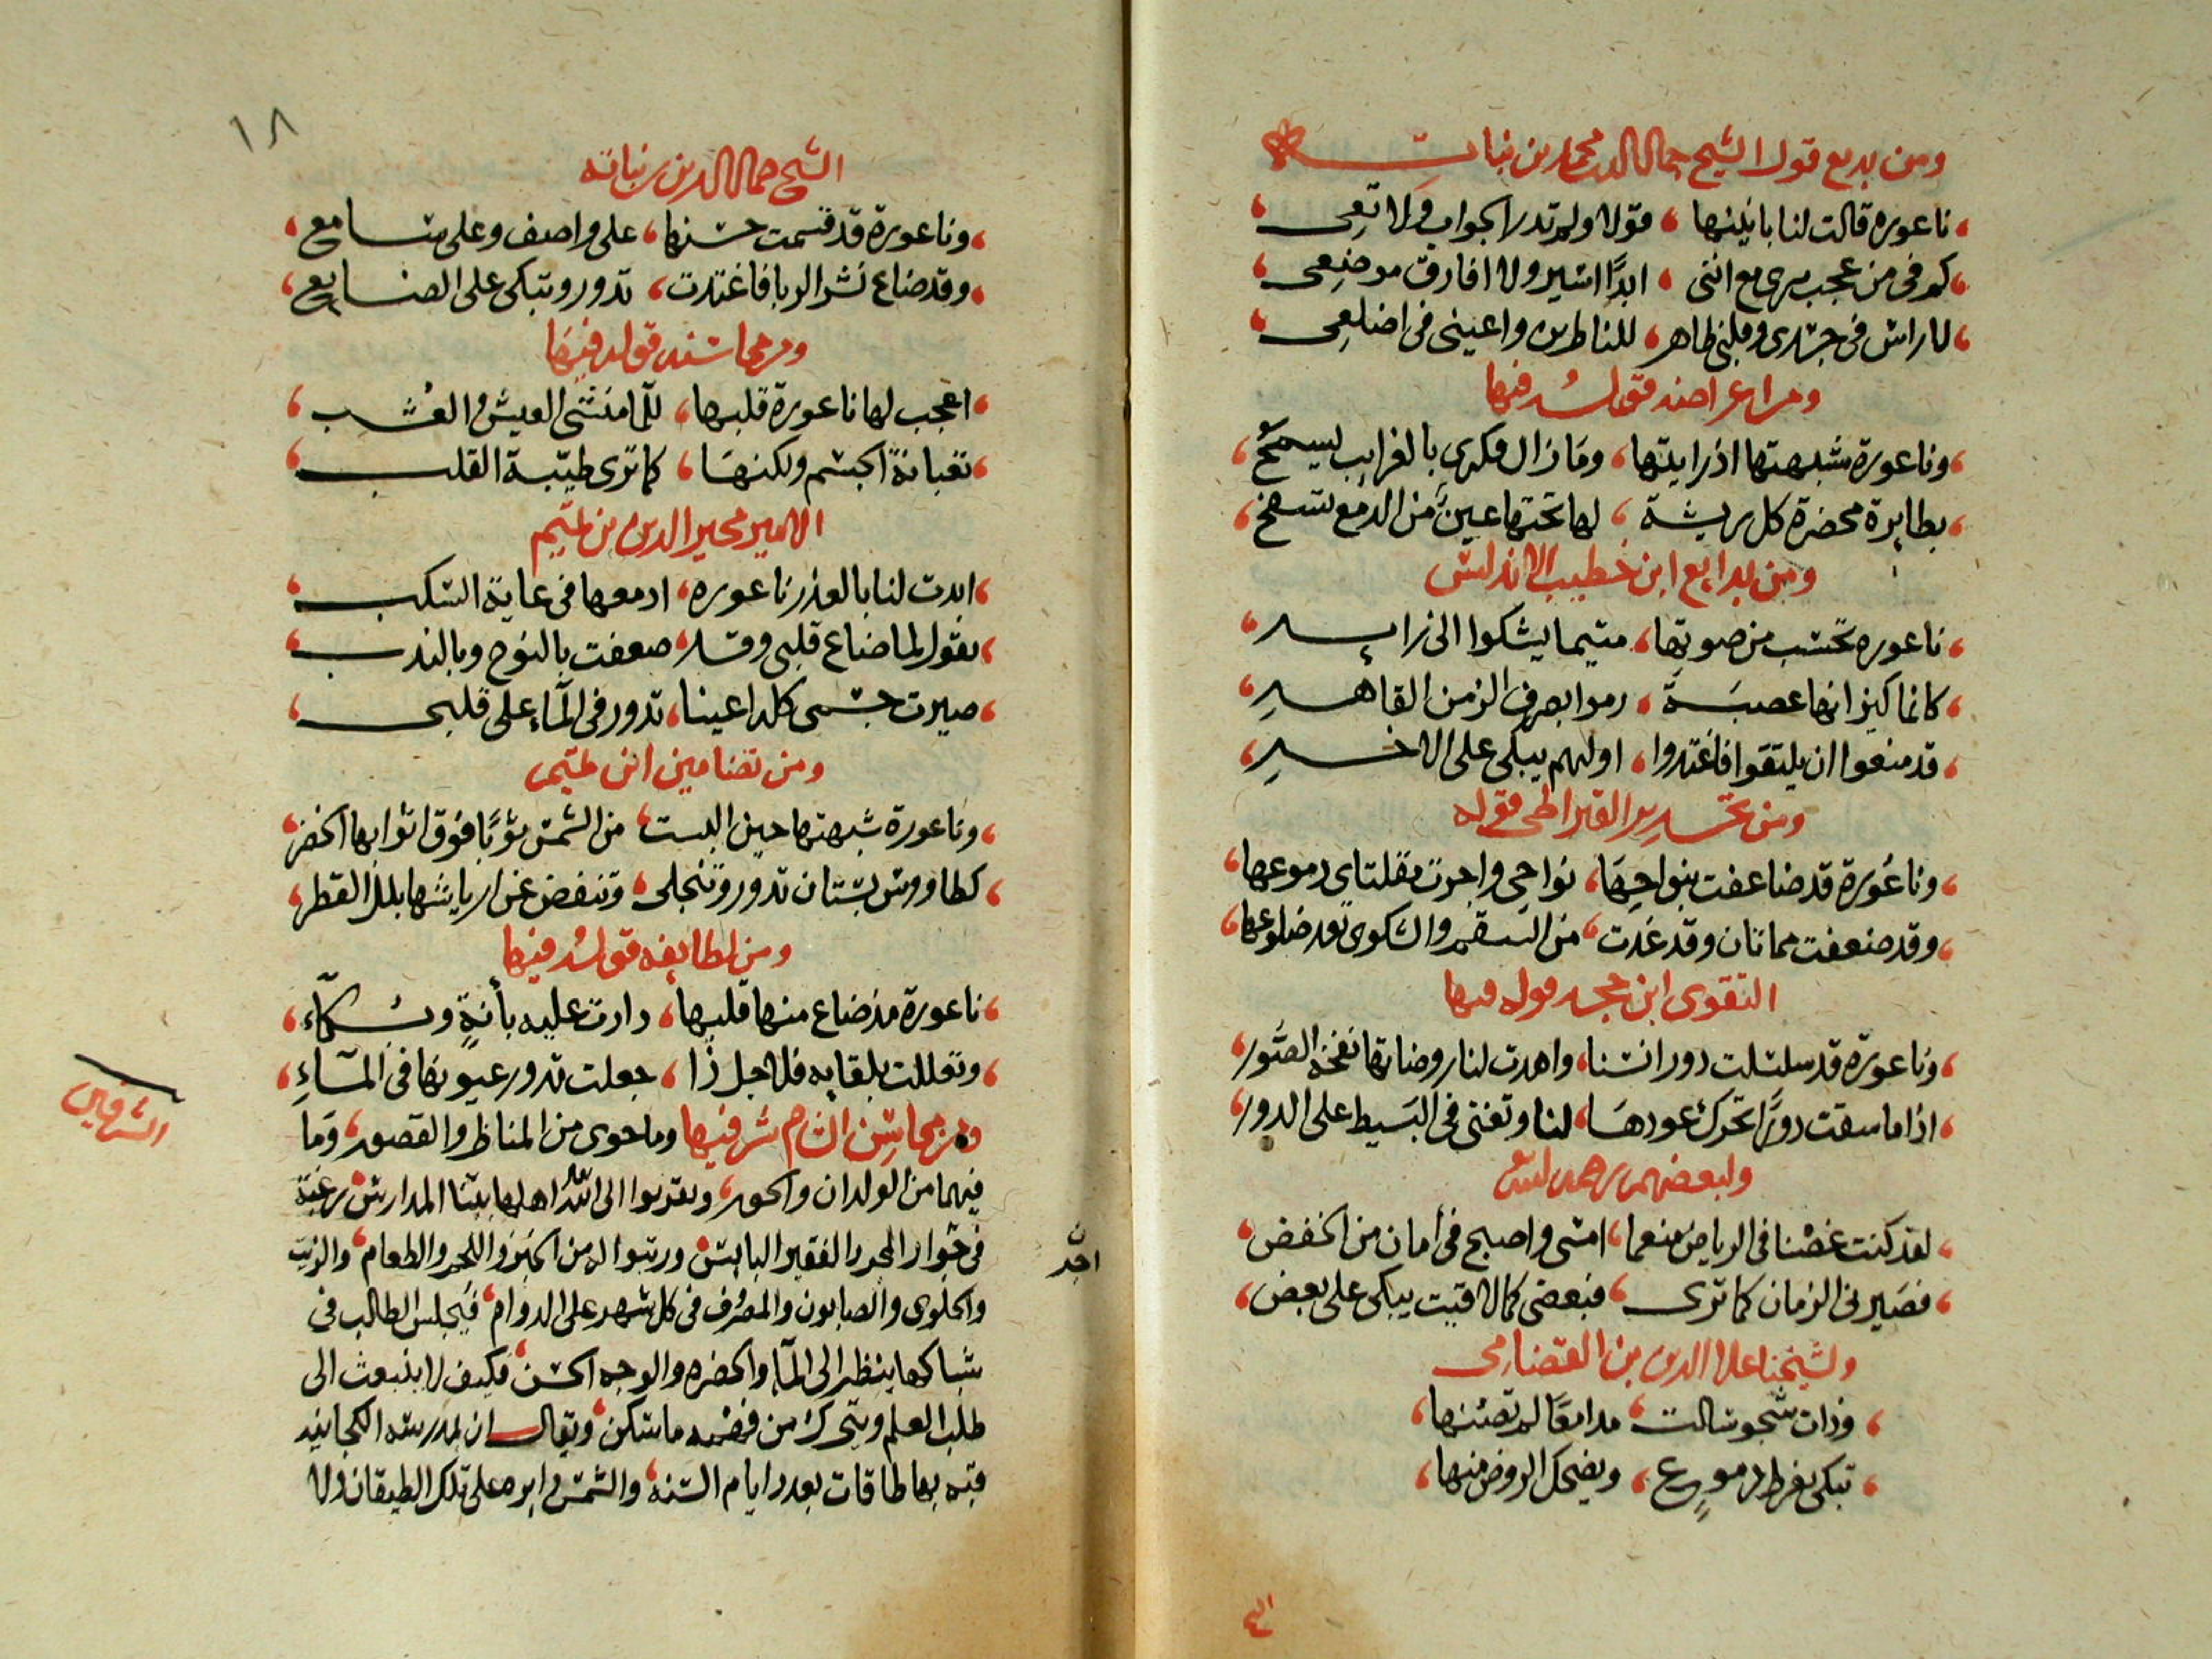 ومن بديع قول الشيخ جمال الدين محمد بن نباته
ناعوره قالت لنا بانينها قولا ولم تدر الجواب ولا تعى
كم فى من عجب يرى مع اننى ابدًا اسير ولا افارق موضعى
لا راس فى جسدى وقلبى ظاهر للناظرين واعينى فى اضلعى
ومن اغراضه قوله فيها
وناعورة شبهتها اذ رايتها ومازال فكرى بالغرايب يسمح
بطايرة محضرة كل ريشة لها تحتها عين من الدمع تسفح
ومن بدايع ابن خطيب الاندلس
ناعوره تحسب من صوتها متيما يشكوا الى زاير
كانما كيزانها عصبة رموا بصرف الزمن القاهر
قد منعوا ان يلتقوا فاغتدوا اولهم يبكى على الاخر
ومن القيراطى قوله
وناعورة قد ضاعفت بنواحها نواحى واجرت مقلتاى دموعها
وقد ضعفت مما تان وقد غدت من السقم والشكوى تعد ضلوعها
التقوى ابن حجه قوله فيها
وناعورة قد سلسلت دور انسنا واهدت لنا روضاتها نفخة الصور
اذا ما سقت دورًا تحرك عودها لنا وتغنى فى البسيط على الدور
ولبعضهم رحمه الله
لقد كنت غصنا فى الرياض منعما امسى واصبح فى أمان من الخفض
فصيرنى الزمان كما ترى فبعضى كما لاقيت يبكى على بعض
ولشيخنا علا الدين بن القضامى
وذات شجو سالت مدامعا لم تصنها
تبكى بفرط دموع ويضحك الروض منها
١٨
الشيخ جمال الدين بن نباته
وناعورة قد قسمت حسنها على واصف وعلى سامع
وقد ضاع نشر الربا فاغتدت تدور وتبكى على الضايع
ومن محاسنه قوله فيها
اعجب لها ناعورة قلبها للما منشى العيش والعشب
تعبانة الجسم ولكنها كما ترى طيبة القلب
الامير مجير الدين بن تميم
ابدت لنا بالعذر ناعوره ادمعها فى غاية السكب
تقول لما ضاع قلبى وقد ضعفت بالنوح وبالندب
صيرت جسمى كله اعينا تدور فى الماء على قلبى
ومن تضامين ابن تميم
وناعورة شبهتها حين البست من الشمس ثوبًا فوق اثوابها الخضر
كطاووس بستان تدور وتنجلى وتنفض عن ارياشها بلل القطر
ومن لطايفه قوله فيها
ناعورة مذ ضاع منها قلبها دارت عليه بأنةٍ وبكاء
وتعللت بلقايه فلاجل ذا جعلت تدور عيونها فى الماءِ
ومن محاسن الشام شرفيها وما حوى من المناظر والقصور وما
الشرفين
فيهما من الولدان والحور وتقربوا الى الله اهلها ببنا المدارس رغبة
فى جوار المجرد الفقير البايس ورتبوا له من الخبز واللحم والطعام والزيت
والحلوى والصابون والمصرف فى كل شهر على الدوام فيجلس الطالب فى
شباكها ينظر الى الماء والخضره والوجه الحسن فكيف لا ينبعث الى
طلب العلم ويتحرك من فهمه ما سكن ويقال ان لمدرسته
قبه بها طاقات بعدد ايام السنه والشمس دايره على تلك الطيقان ولا